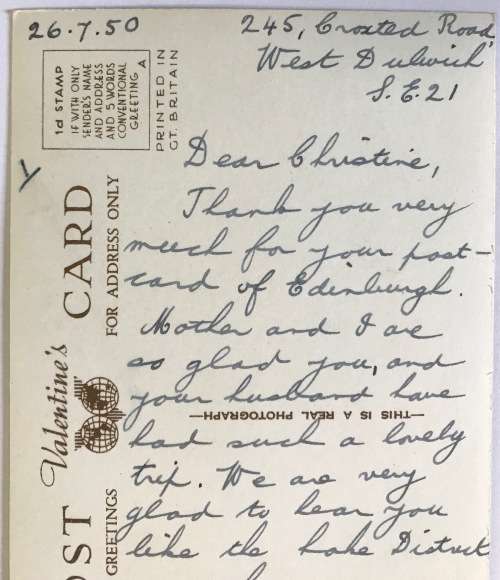 26.7.50
245, Croxted Road,
West Dulwich
S.E.21
1d STAMP
IF WITH ONLY
SENDER'S NAME
AND ADDRESS
AND 5 WORDS
CONVENTIONAL
GREETING A
PRINTED IN
GT. BRITAIN
Dear Christine,
Thank you very
much for your post-
card of Edinburgh.
Mother and I are
so glad you, and
your husband have
had such a lovely
trip. We are very
glad to hear you
like the Lake District
CARD
FOR ADDRESS ONLY
Valentine's
—THIS IS A REAL PHOTOGRAPH—
OST
GREETINGS